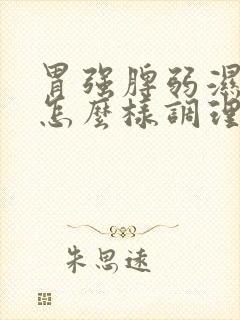 胃强脾弱濕
怎麽樣調理
朱思遠